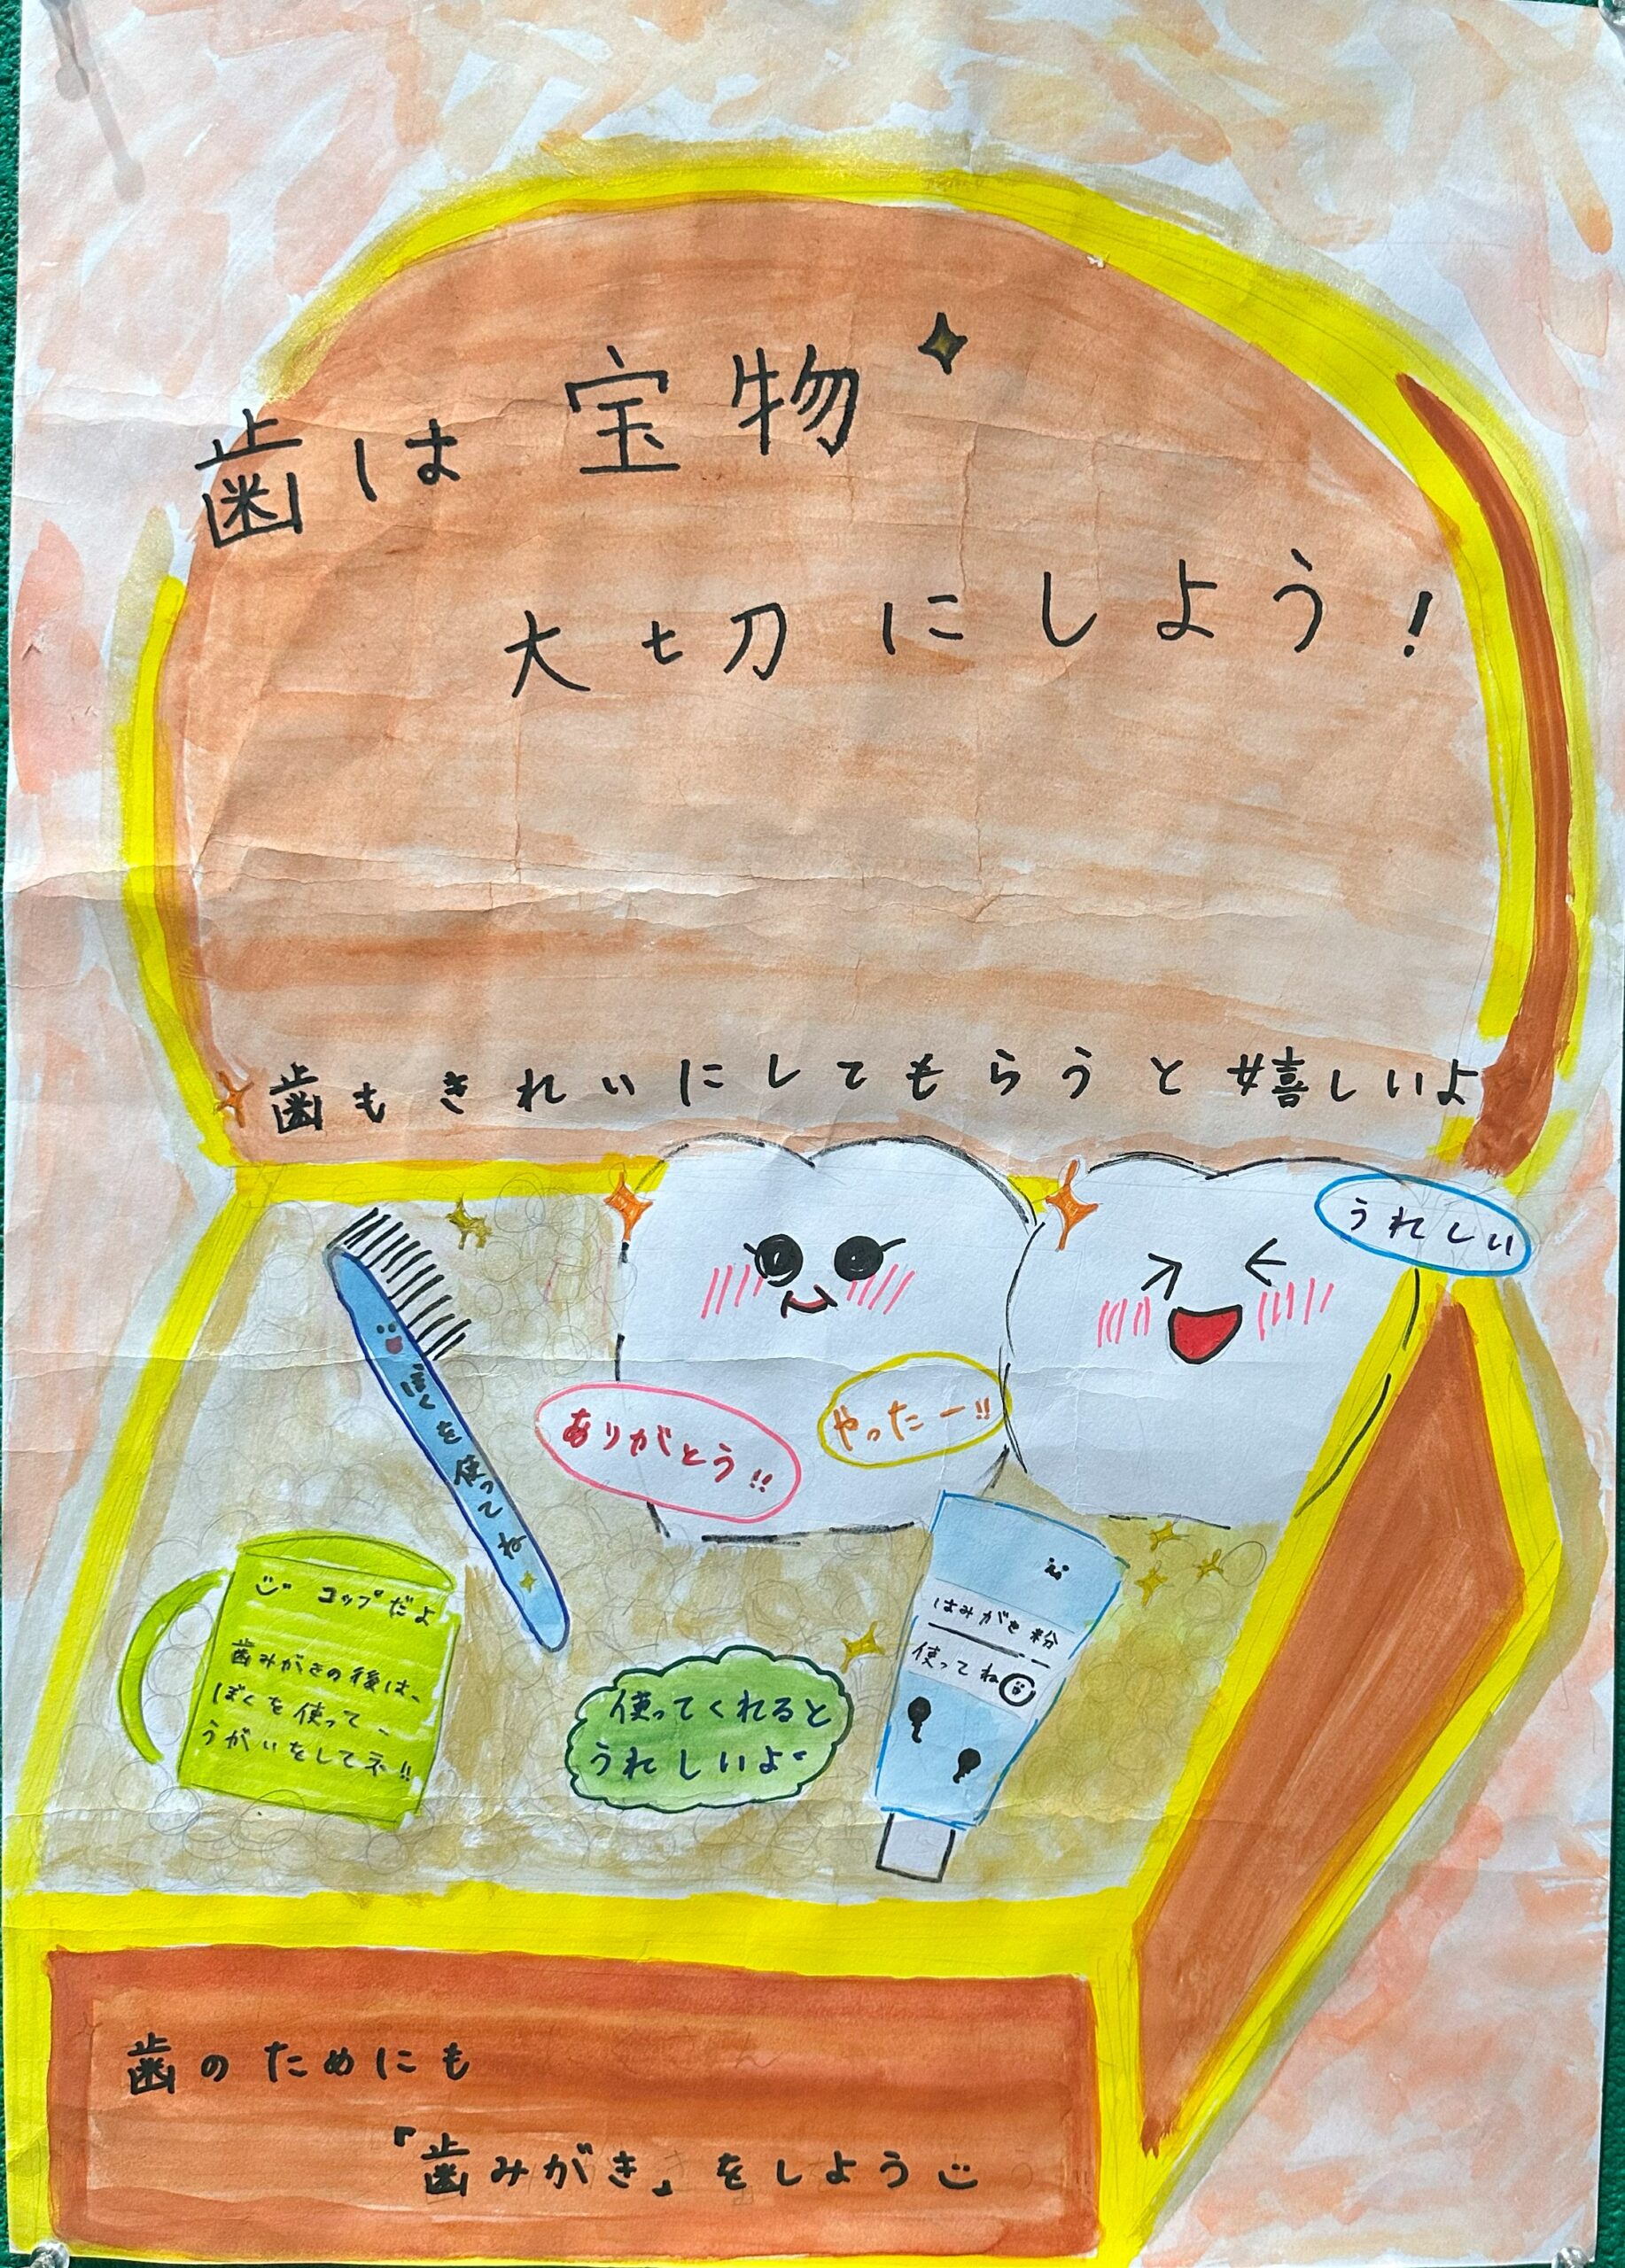 歯は宝物
大切にしよう!
歯もきれいにしてもらうと嬉しいよ
うれしい
ぼくを使ってね
ありがとう!!
やったー!!
コップだよ
歯みがきの後は、
ぼくを使って、
うがいをしてネ!!
はみがき粉
使ってね
使ってくれると
うれしいよ
歯のためにも
「歯みがき」をしよう